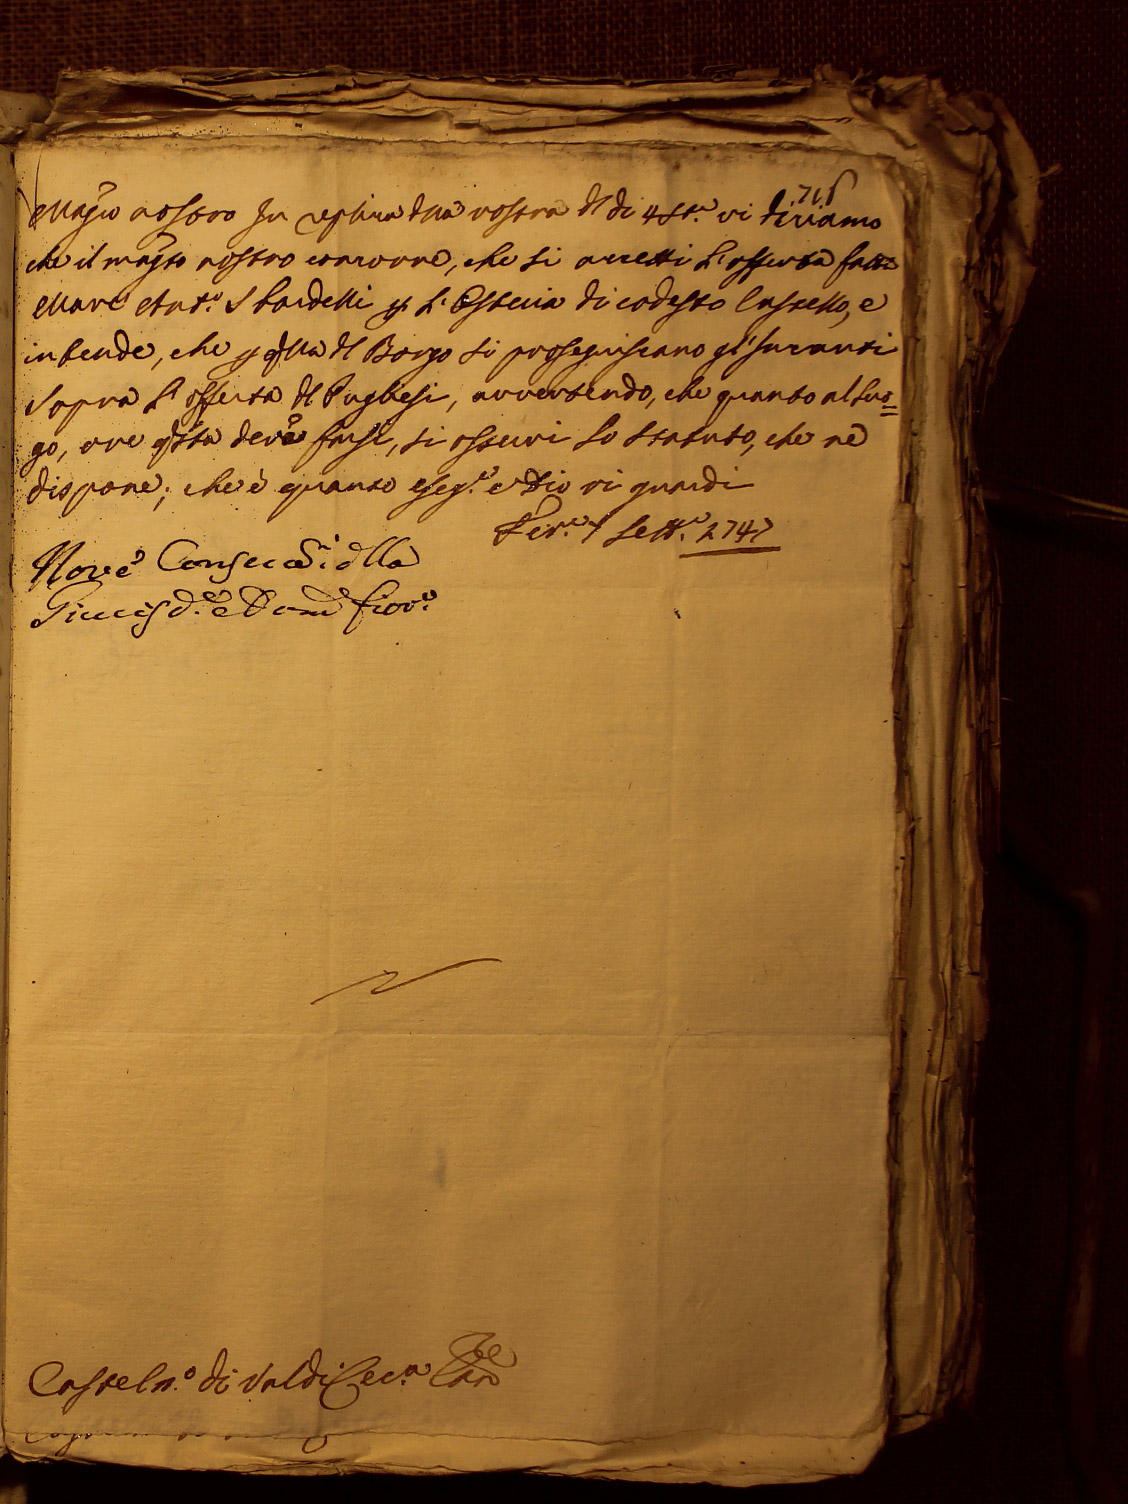 716
Mag.co nostro In replica dlla vostra dl dì 4 St.e vi diciamo
che il mag.to nostro concorre, che si accetti L'offerta fatta
Marc' Ant.o Sbardelli p L'Osteria di codesto Castello, e
intende, che p qlla dl Borgo si proseguiscano gl'Incanti
sopra L'offerta dl Pughesi, avvertendo, che quanto al luo=
go, ove qsta deve farsi, si osservi lo statuto, che ne
dispone; che è quanto e Dio vi guardi
Fir.e 7 Sett.e 1747
Nove Conser.i dlla
Giurisd.e e Dom.o Fior.o
Casteln.o di Valdi Cec.a